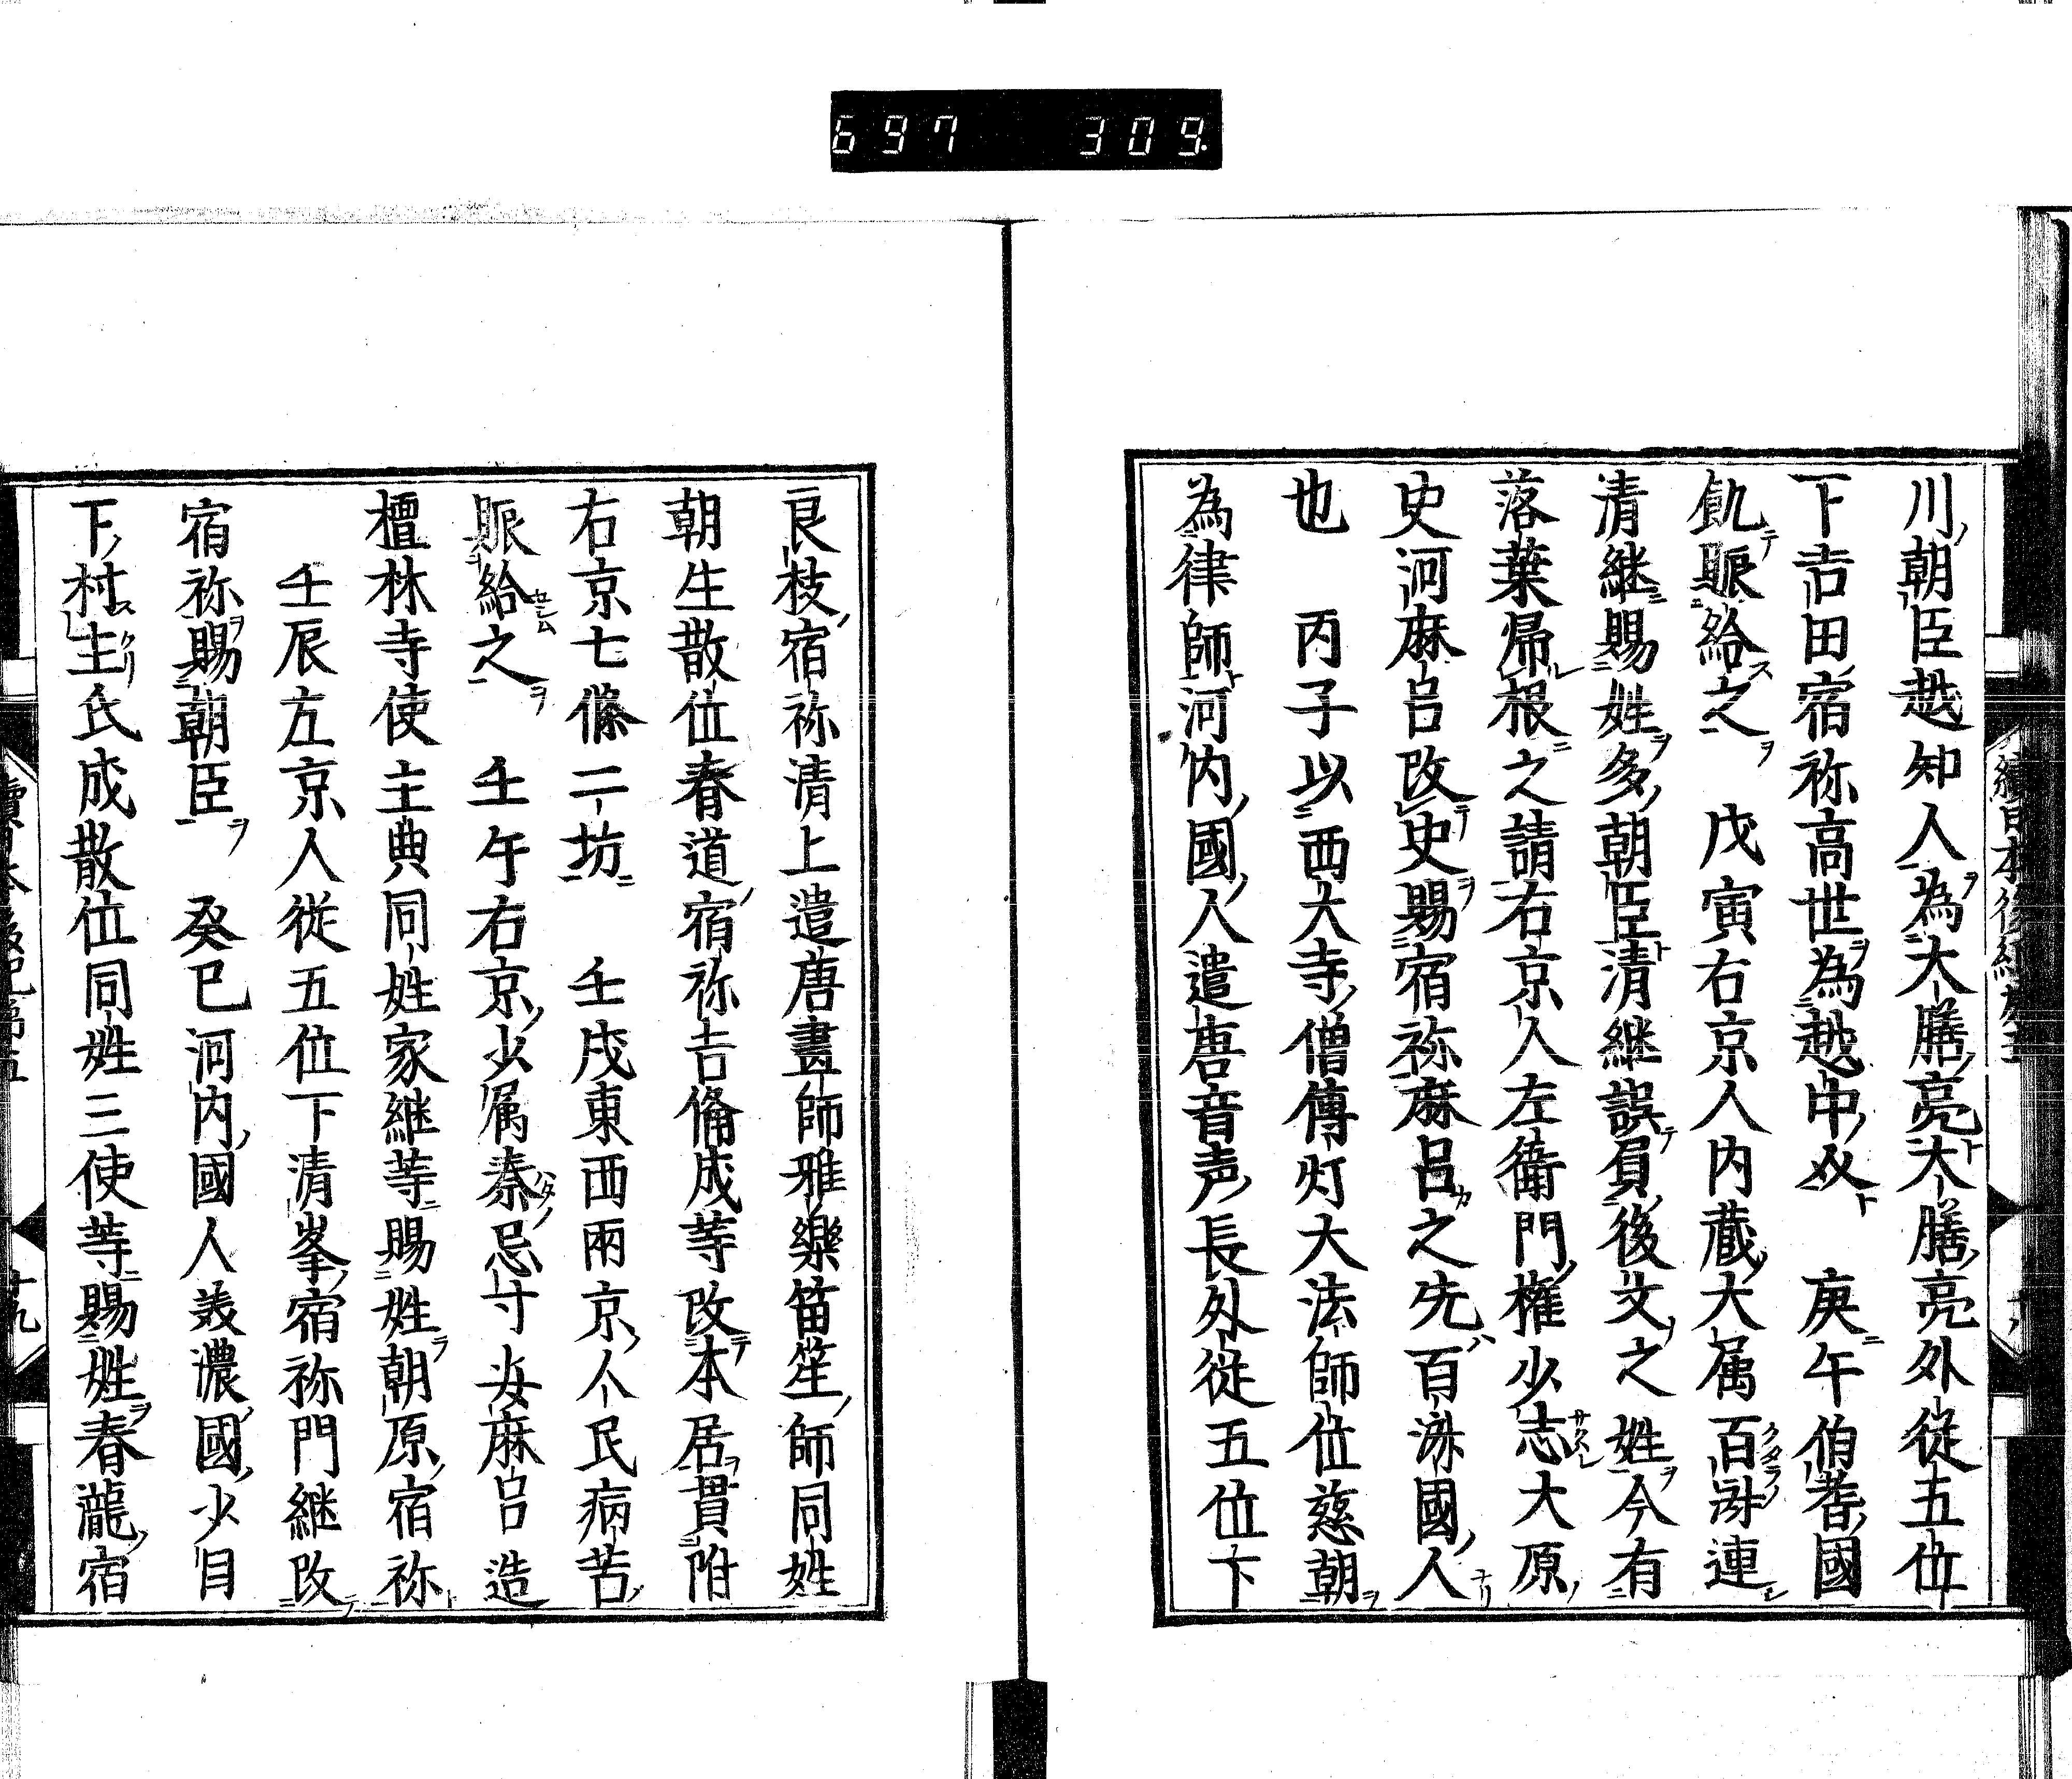 697 309.
川朝臣越知人為大膳亮大膳亮外從五位
下吉田宿祢高世為越中介 庚午伯耆國
飢賑給之 戊寅右京人内蔵大属百済連
清継賜姓多朝臣清継誤負後父之姓今有
落葉帰根之請右京人左衛門権少志大原
史河麻呂改史賜宿祢麻呂之先百済國人
也 丙子以西大寺僧傳灯大法師位慈朝
為律師河内國人遣唐音声長外従五位下
良枝宿祢清上遣唐畫師雅樂笛笙師同姓
朝生散位春道宿祢吉備成等改本居貫附
右京七條二坊 壬戌東西兩京人民病苦
賑給之 壬午右京少属秦忌寸安麻呂造
檀林寺使主典同姓家継等賜姓朝原宿祢
壬辰左京人従五位下清峯宿祢門継改
宿祢賜朝臣 癸巳河内國人美濃國少目
下村主氏成散位同姓三使等賜姓春瀧宿